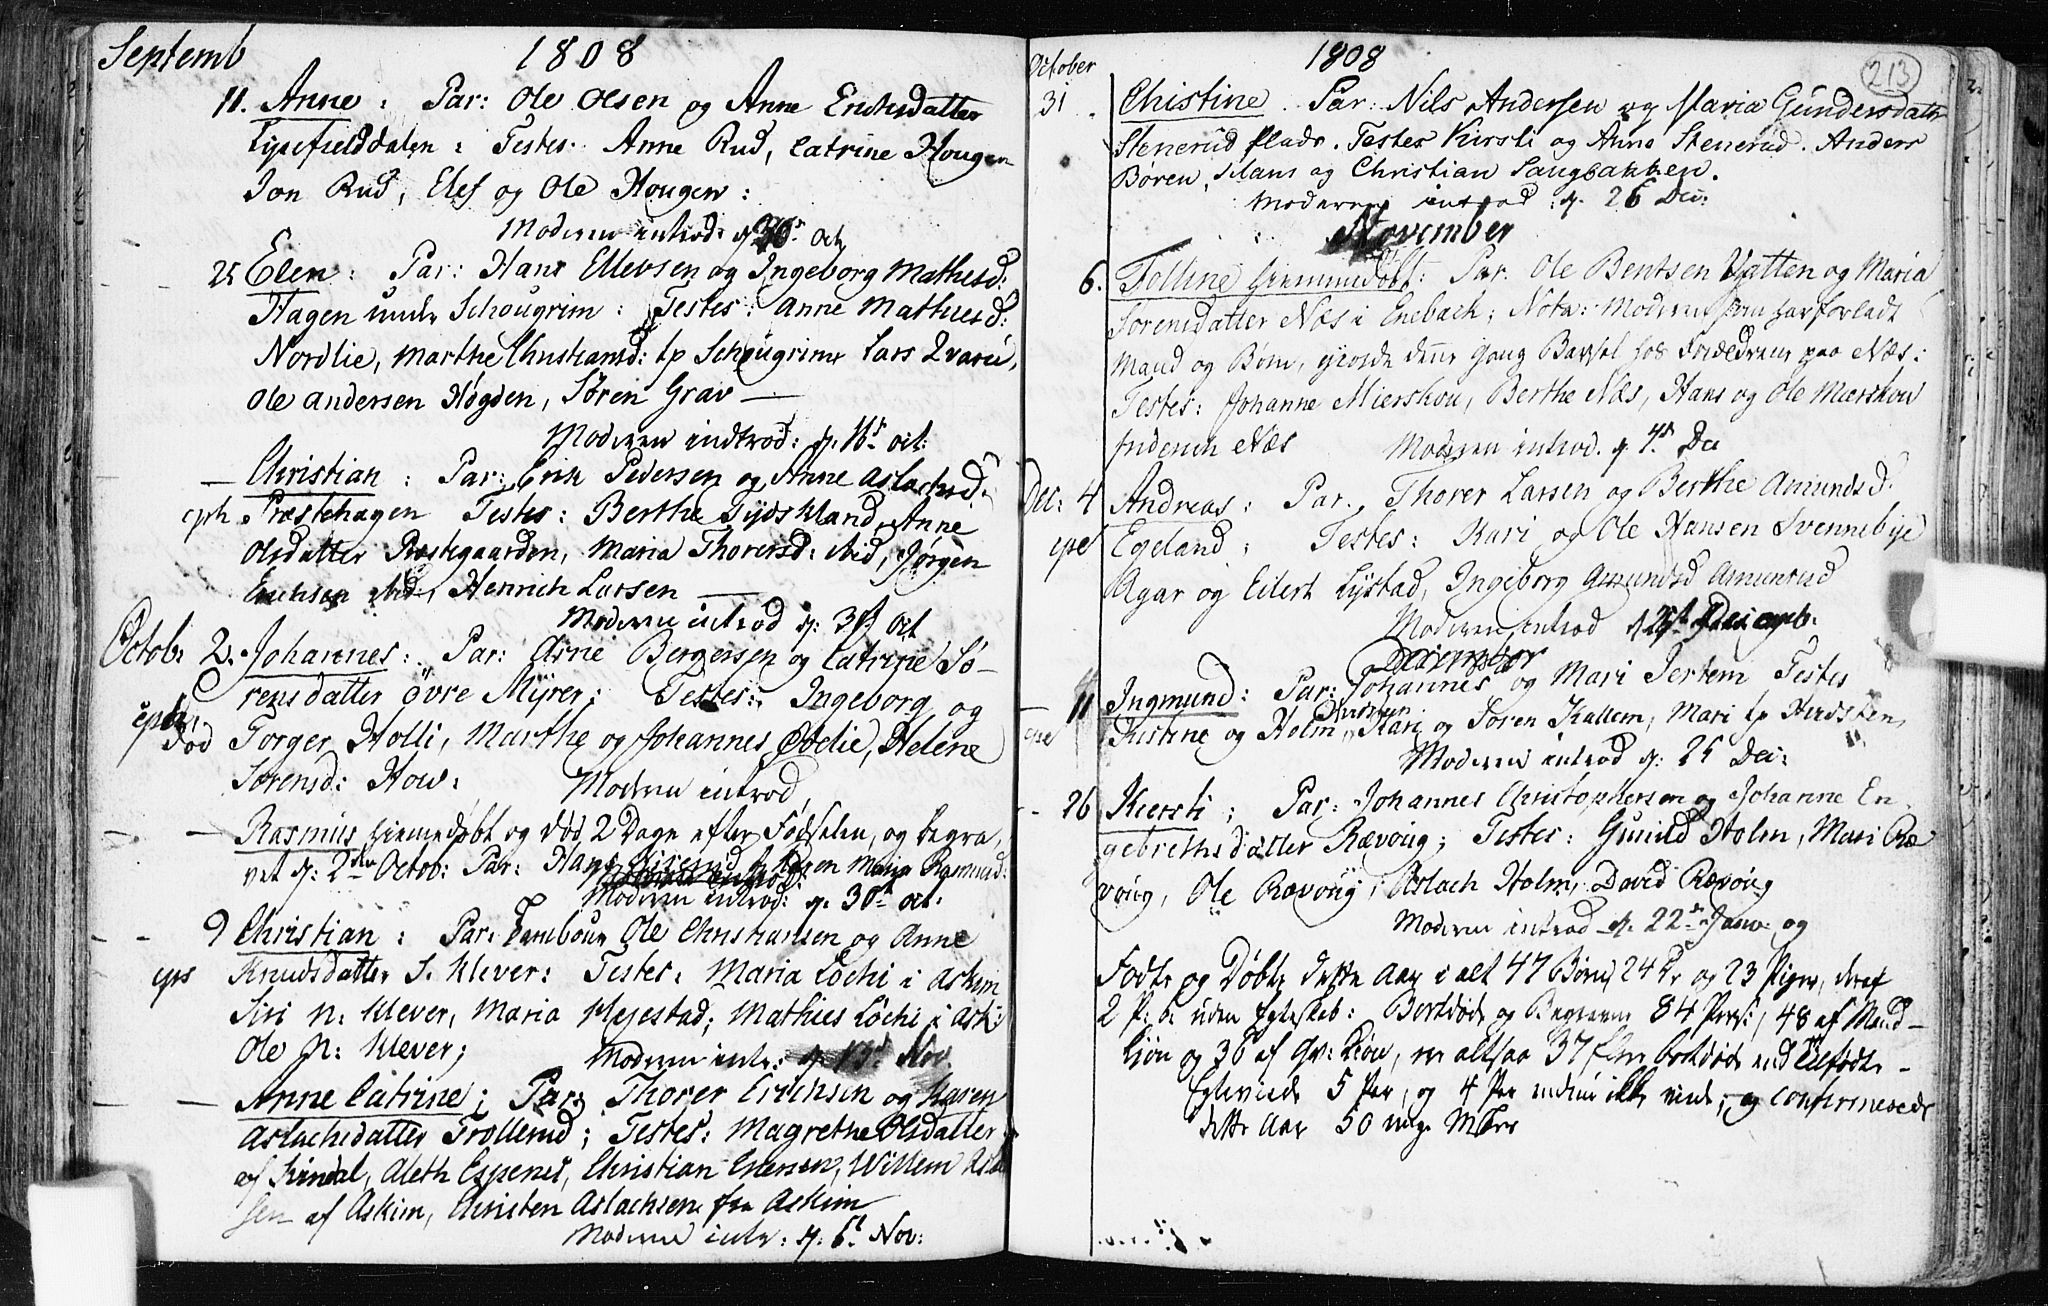 Septemb 1808
11. Anne: Par: Ole Olsen og Anne Erichsdatter
Lysefjelddalen: Testes: Anne Rud, Catrine Hougen
Jon Rud, Elef og Ole Hougen:
Moderen introd: d: 30t Oct
25 Elen: Par: Hans Ellevsen og Ingeborg Mathisd:
Hagen under Schougrim: Testes: Anne Mathiesd:
Nordlie, Marthe Christiansd: tp Schougrim Lars
Ole Andersen Høgden, Søren Grav —
Moderen indtrod: d. 16t Oct:
— Christian: Par: Erik Pedersen og Anne Aslachsd:
cph. Præstehagen Testes: Berthe Tydskland, Anne
Olsdatter Præstegaarden, Maria Thorersd: ibid, Jørgen
Erichsen ibid, Henrich Larsen —
Moderen introd d: 30t Oct
Octob: 2. Johannes: Par: Arne Bergersen og Catrine Sø-
rensdatter øvre Myrer: Testes: Ingeborg og
død Torger Holli, Marthe og Johannes, Helene
Sørensd: How:
Moderen introd,
— Rasmus hiemmedøbt og død 2 Dage efter Fødselen, og begra,
vet d: 2den Octob: Par: Hans og Karen Maria Rasmusd:
Moderen introd: d. 30t Oct:
9 Christian: Par: Tambour Ole Christiansen og Anne
Knudsdatter S. Klever: Testes: Maria Løchi i Askim
Siri N: Klever, Maria Hejestad; Mathies Løchi i Ask:
Ole N: Klever;
Moderen intr: d: 13t Nov.
— Anne Catrine; Par: Thorer Erichsen og Karen
Aslachsdatter Trollerud; Testes: Magrethe Olsdatter
af Kindal, Aleth Espenes, Christian Evensen, Willem Asla
sen af Askim, Christen Aslachsen fra Askim
Moderen intr: d: 6t Nov:
October 1808 213
31. Christine. Par: Nils Andersen og Maria Gundersdatter
Stenerud Plads. Testes Kirsti og Anne Stenerud. Anders
Boren, Hans og Christian Saugbakken.
Moderen introd: d. 26 Dec:
November
6. Tolline hiemmedøbt: Par. Ole Bentsen Vatten og Maria
Sørensdatter Næs i Enebach; Nota: Moderen som har forladt
Mand og Børn, giorde denne Gang Barsel hos Friederich paa Næs:
Testes: Johanne Mierskou, Berthe Næs, Hans og Ole Mierskou
friderich Næs Moderen introd. d. 4t Dec
Dec: 4 Andreas: Par. Thorer Larsen og Berthe Amundsd.
Egeland; Testes: Kari og Ole Hansen Svennebye
Agar og Eilert Lystad, Ingeborg Amundsd Amundrud
Moderen introd d 26t Decemb:
December
— 11 Ingmund: Par: Johannes og Mari Jertem Testes
Kistine og Holm, Kari og Søren Kallem; Mari tp Hudsten,
Moderen introd d: 25 Dec:
- 26 Kiersti; Par: Johannes Christophersen og Johanne En
gebrethsdatter Rævoug; Testes: Gunild Holm, Mari Ræ
voug, Ole Rævoug; Aslach Holm, David Rævoug
Moderen introd d. 22t Janv: og
Fødte og Døbte dette Aar i alt 47 Børn, 24 Dr og 23 Piger, deraf
2 P: b: uden Egteskab: Bortdøde og Begravne 84 Pers:, 48 af Mand-
kiøn og 36 af Qv: Kiøn, er altsaa 37 flere bortdøde end tilfødte -
Egteviede 5 Par, og 4 Par endnu ikke viede; og confirmerede
dette Aar 50 unge Msker